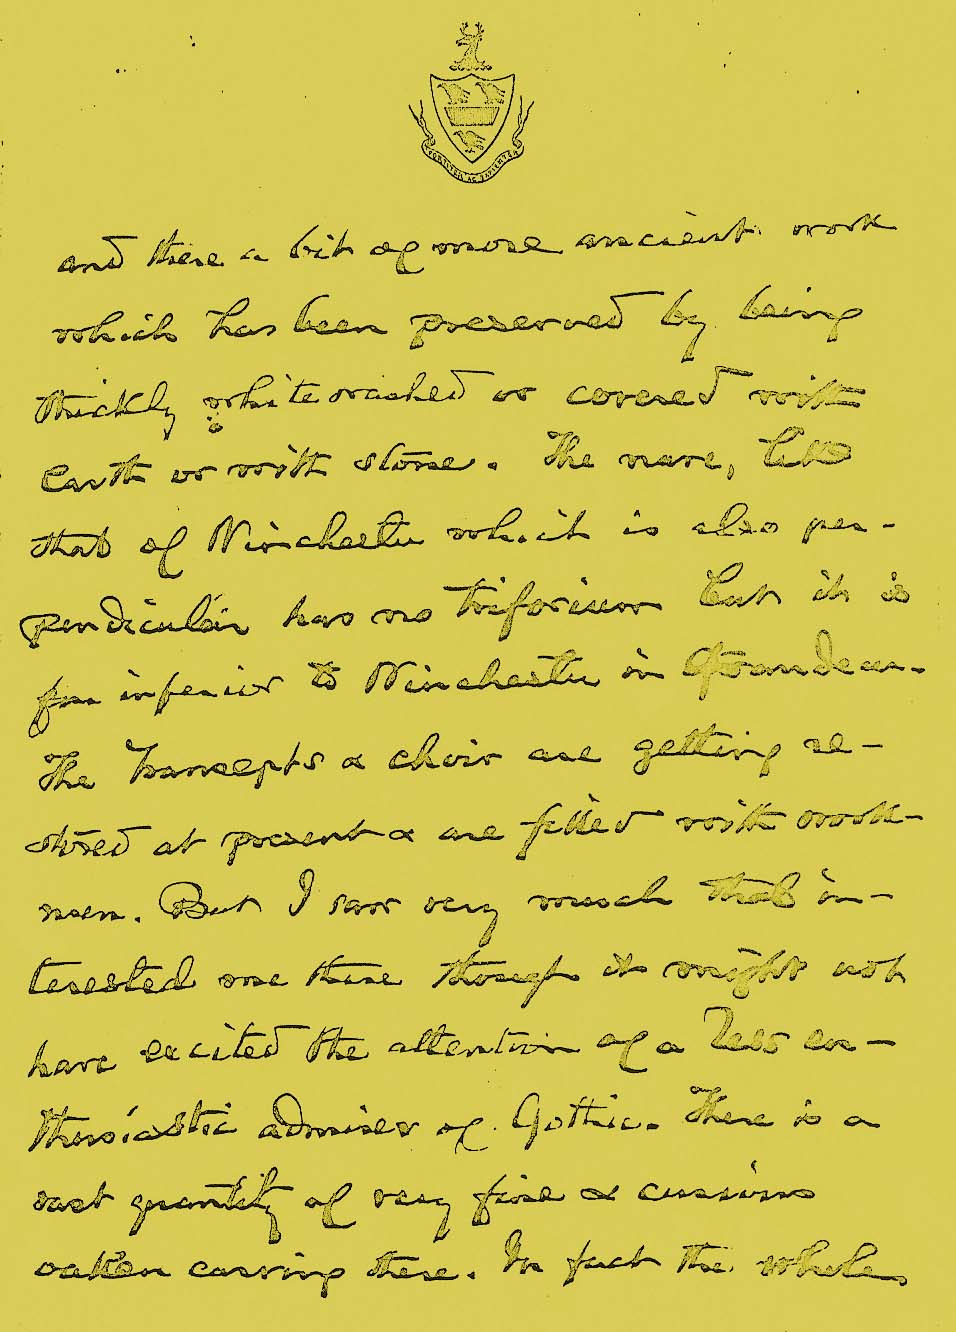 FORTITER AC SAPIENTER
and there a bit of more ancient work
which has been preserved by being
thickly whitewashed or covered with
earth or with stone. The nave, like
that of Winchester which is also per-
pendicular has no triforium but it is
far inferior to Winchester in Grandeur.
The Transepts & choir are getting re-
stored at present & are filled with work-
men. But I saw very much that in-
terested me there though it might not
have excited the attention of a less en-
thusiastic admirer of Gothic. There is a
vast quantity of very fine & curious
oaken carving there. In fact the whole